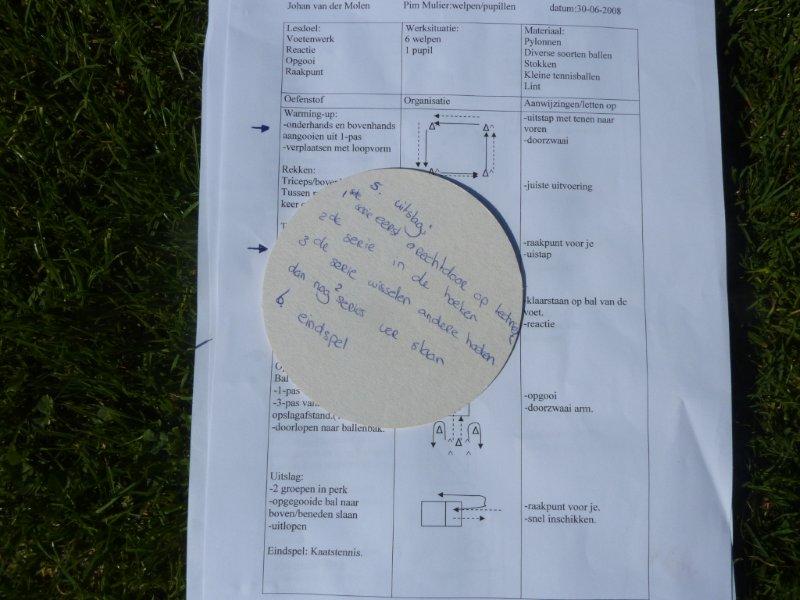 Johan van der Molen Pim Mulier:welpen/pupillen datum:30-06-2008
Lesdoel:
Voetenwerk
Reactie
Opgooi
Raakpunt
Werksituatie:
6 welpen
1 pupil
Materiaal:
Pylonnen
Diverse soorten ballen
Stokken
Kleine tennisballen
Lint
Oefenstof
Organisatie
Aanwijzingen/letten op
Warming-up:
-onderhands en bovenhands
aangooien uit 1-pas
-verplaatsen met loopvorm
-uitstap met tenen naar
voren
-doorzwaai
Rekken:
Tussen
keer
-juiste uitvoering
-raakpunt voor je
-uistap
-klaarstaan op bal van de
voet.
-reactie
5. uitslag:
1ste serie eerst rechtdoor op
2de serie in de hoeken
3de serie wisselen andere hoeken
dan nog 2 series vee slaan
6. eindspel
Bal
-1-pas
-3-pas
opslagafstand.
-doorlopen naar ballenbak.
-opgooi
-doorzwaai arm.
Uitslag:
-2 groepen in perk
-opgegooide bal naar
boven/beneden slaan
-uitlopen
-raakpunt voor je.
-snel inschikken.
Eindspel: Kaatstennis.